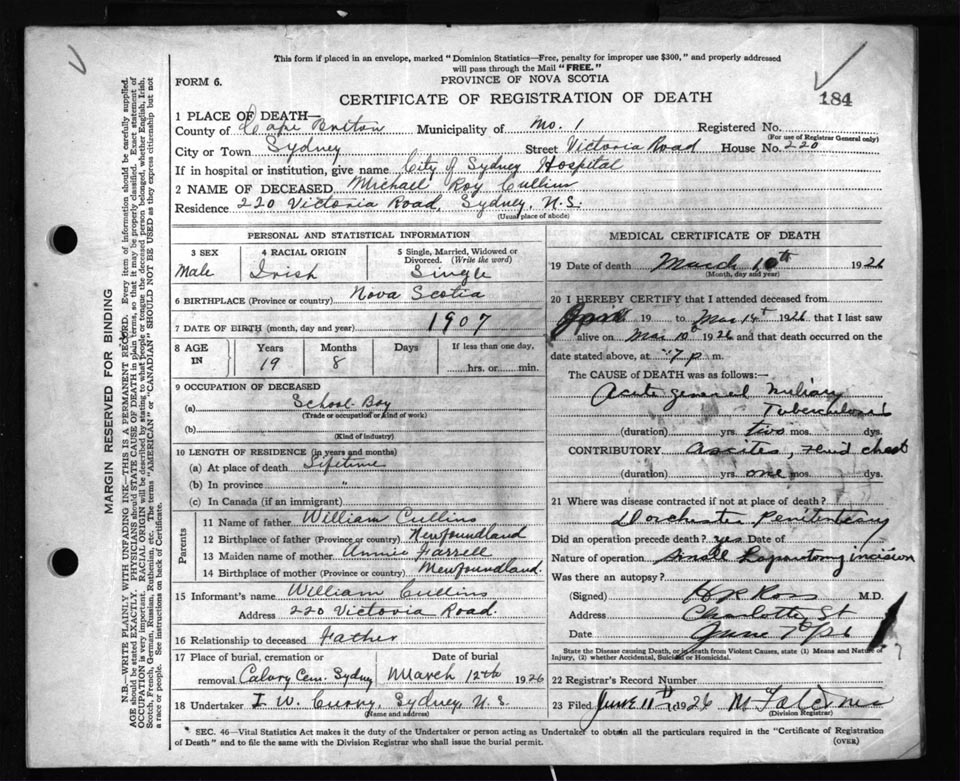 This form if placed in an envelope, marked "Dominion Statistics—Free, penalty for improper use $300," and properly addressed
will pass through the Mail "FREE."
FORM 6.
PROVINCE OF NOVA SCOTIA
CERTIFICATE OF REGISTRATION OF DEATH
184
1 PLACE OF DEATH—
County of Cape Breton Municipality of No. 1 Registered No.
(For use of Registrar General only)
City or Town Sydney Street Victoria Road House No. 220
If in hospital or institution, give name City of Sydney Hospital
2 NAME OF DECEASED Michael Roy Cullins
Residence 220 Victoria Road, Sydney, N.S.
(Usual place of abode)
PERSONAL AND STATISTICAL INFORMATION
3 SEX 4 RACIAL ORIGIN 5 Single, Married, Widowed or Divorced. (Write the word)
Male Irish Single
6 BIRTHPLACE (Province or country) Nova Scotia
7 DATE OF BIRTH (month, day and year) 1907
8 AGE IN Years Months Days If less than one day,
19 8 hrs. or min.
9 OCCUPATION OF DECEASED
(a) School-Boy
(Trade or occupation or kind of work)
(b)
(Kind of industry)
10 LENGTH OF RESIDENCE (in years and months)
(a) At place of death Lifetime
(b) In province "
(c) In Canada (if an immigrant)
Parents
11 Name of father William Cullins
12 Birthplace of father (Province or country) Newfoundland
13 Maiden name of mother Annie Farrell
14 Birthplace of mother (Province or country) Newfoundland.
15 Informant's name William Cullins
Address 220 Victoria Road.
16 Relationship to deceased Father
17 Place of burial, cremation or removal Date of burial
Calvary Cem. Sydney March 12th 1926
18 Undertaker Curry, Sydney, N.S.
(Name and address)
MEDICAL CERTIFICATE OF DEATH
19 Date of death March 10th 1926
(Month, day and year)
20 I HEREBY CERTIFY that I attended deceased from
19 to Mar 1926 that I last saw
alive on Mar 10th 1926 and that death occurred on the
date stated above, at 7 p. m.
The CAUSE OF DEATH was as follows:—
Acute general Miliary
Tuberculosis
(duration) yrs. two mos. dys.
CONTRIBUTORY Ascites, Fluid chest
(duration) yrs. one mos. dys.
21 Where was disease contracted if not at place of death?
Dorchester Penitentiary
Did an operation precede death? yes Date of
Nature of operation Small Laparotomy incision
Was there an autopsy?
(Signed) Ross M.D.
Address Charlotte St
Date June 7
State the Disease causing Death, or in death from Violent Causes, state (1) Means and Nature of
Injury, (2) whether Accidental, Suicidal or Homicidal.
22 Registrar's Record Number
23 Filed June 11th 1926
(Division Registrar)
SEC. 46—Vital Statistics Act makes it the duty of the Undertaker or person acting as Undertaker to obtain all the particulars required in the "Certificate of Registration
of Death" and to file the same with the Division Registrar who shall issue the burial permit.
(OVER)
MARGIN RESERVED FOR BINDING
N.B.—WRITE PLAINLY WITH UNFADING INK—THIS IS A PERMANENT RECORD. Every item of information should be carefully supplied.
AGE should be stated EXACTLY. PHYSICIANS should STATE CAUSE OF DEATH in plain terms, so that it may be properly classified. Exact statement of
OCCUPATION is very important. RACIAL ORIGIN will be described by stating to what people or tongue the deceased person belonged, whether English, Irish,
Scotch, French, German, Russian, Ruthenian, etc. The terms "AMERICAN" or "CANADIAN" SHOULD NOT BE USED as they express citizenship but not
a race or people. See instructions on back of Certificate.